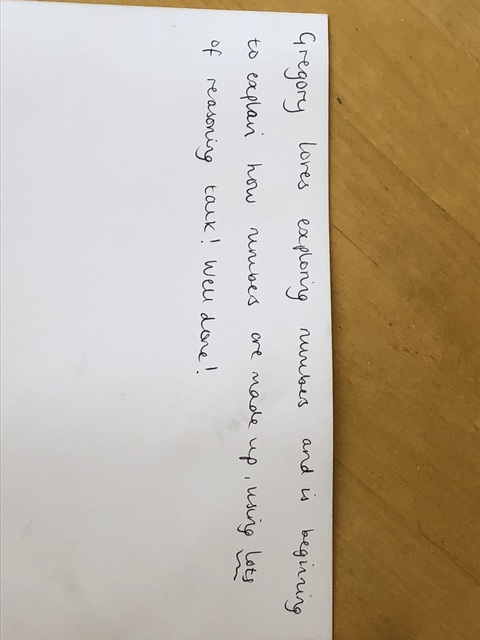 Gregory loves exploring numbers and is beginning
to explain how numbers are made up, using lots
of reasoning talk! Well done!